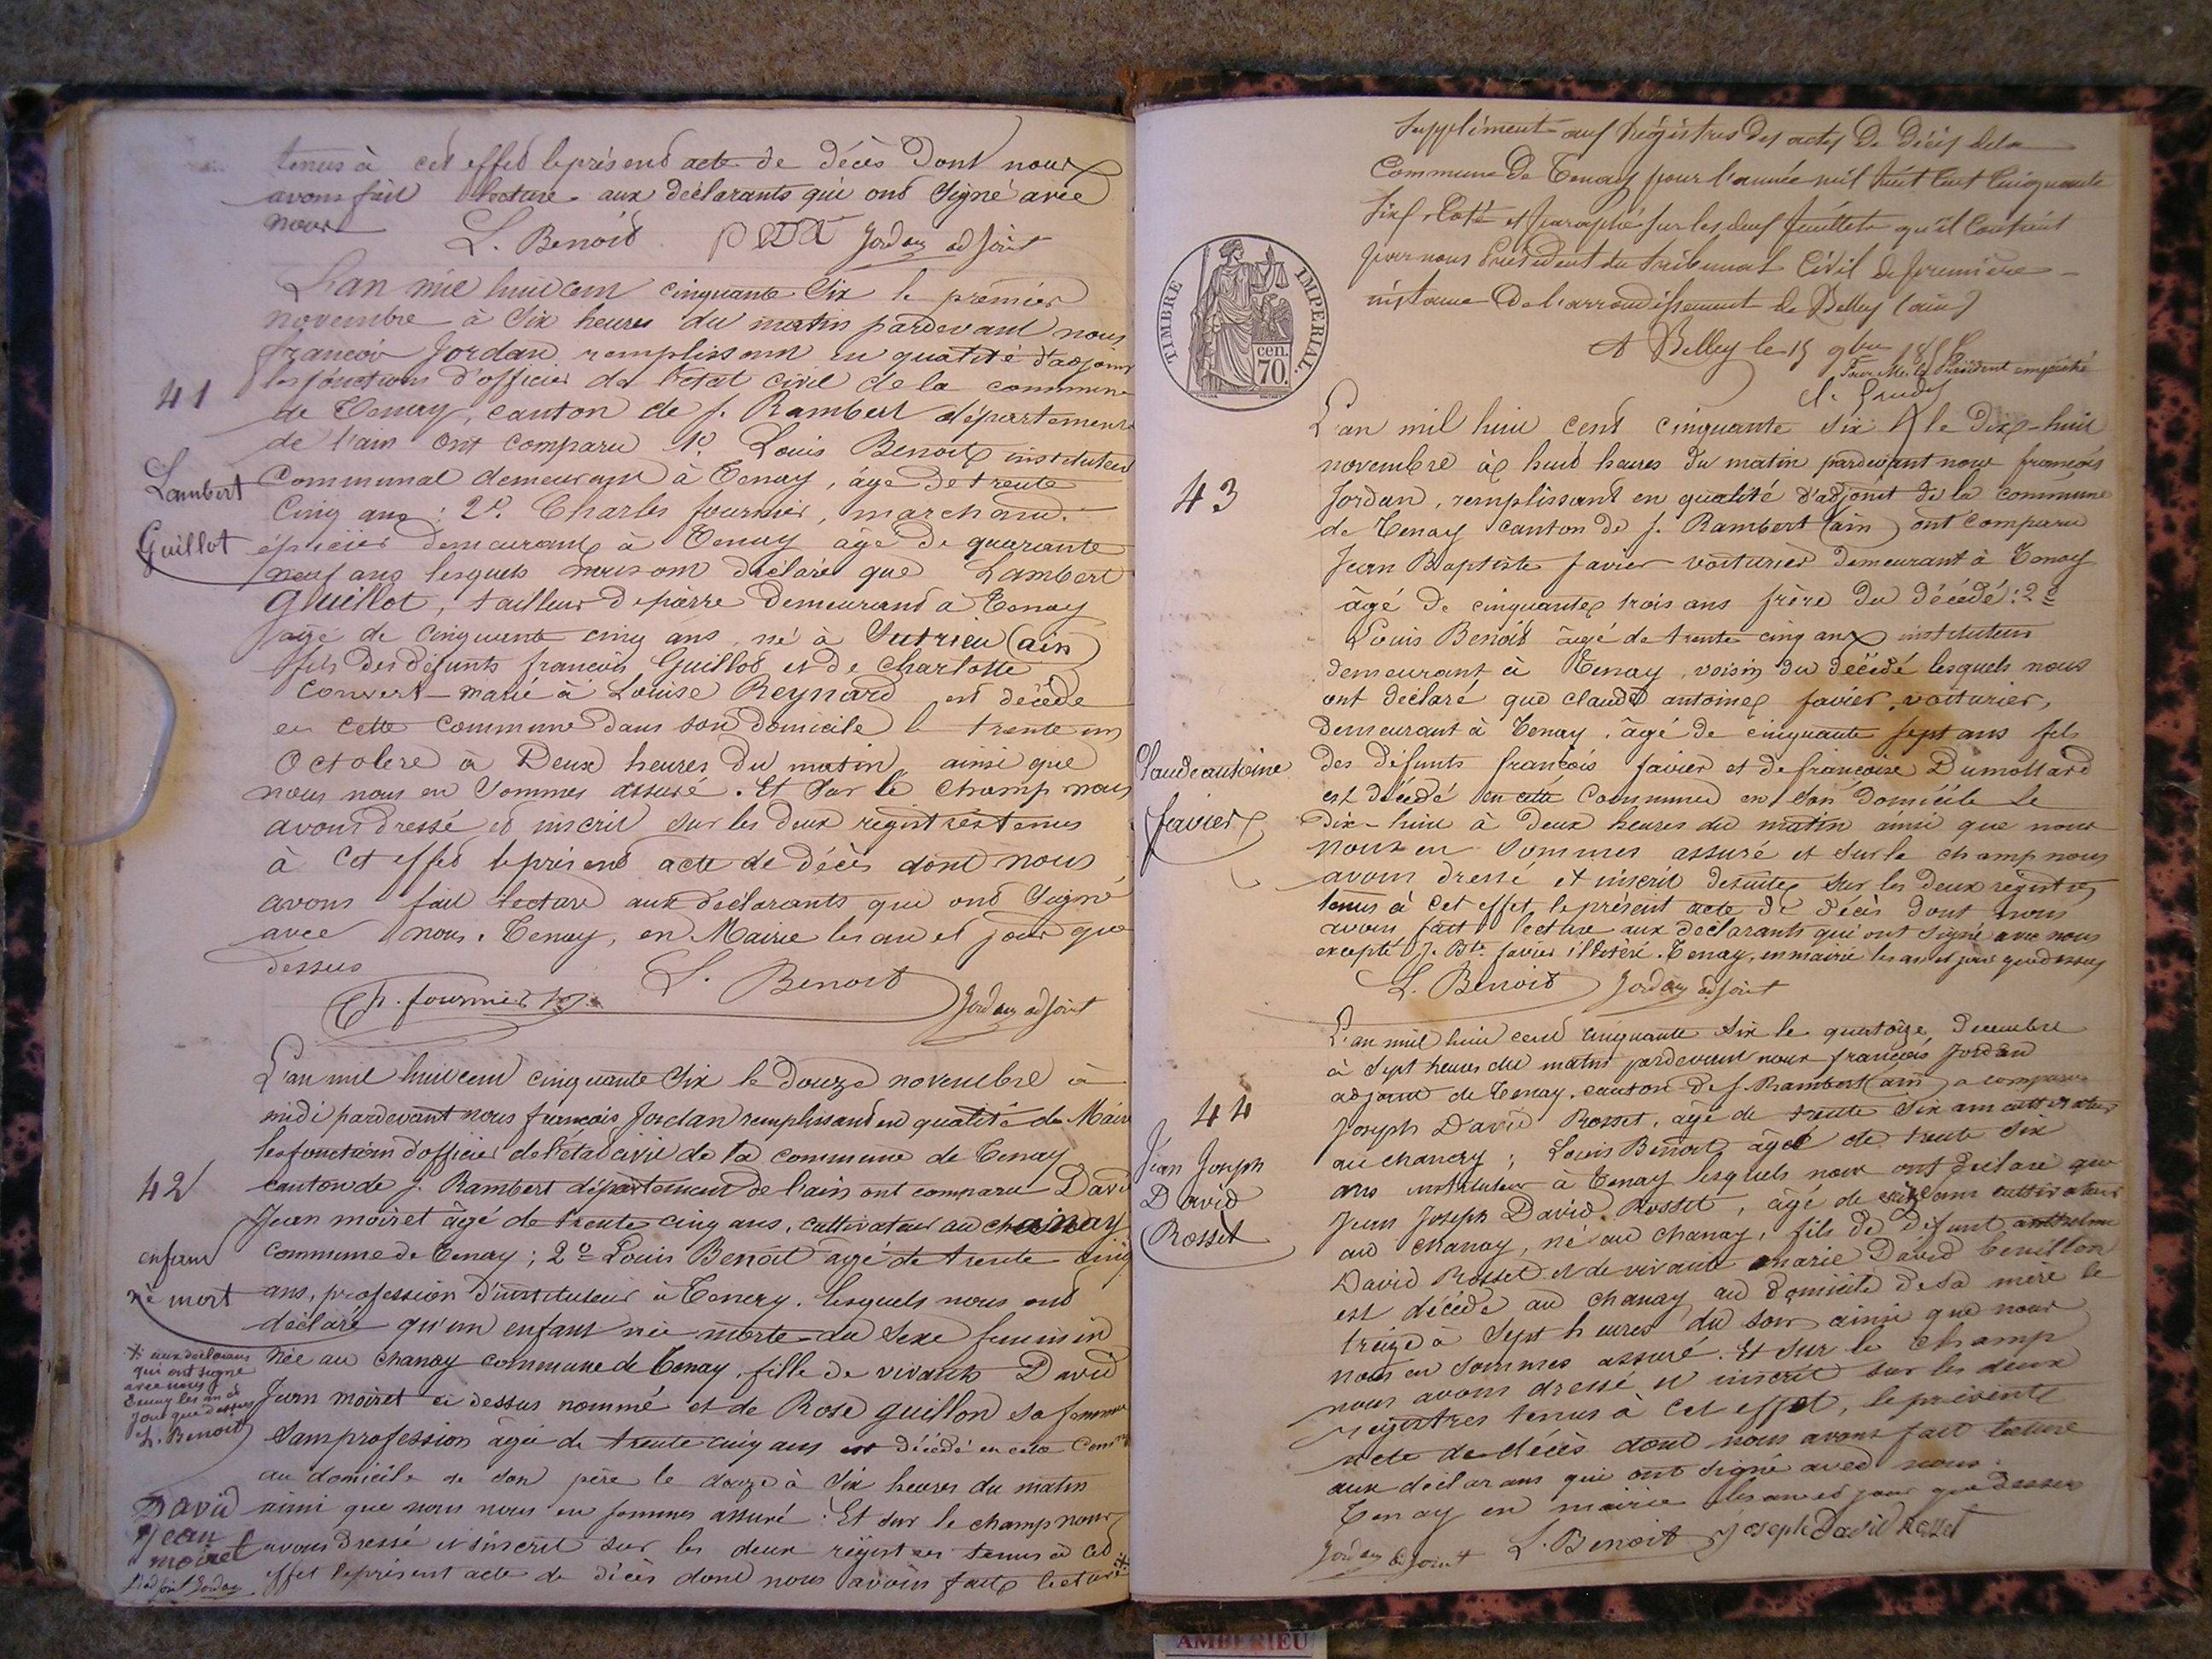 tenus à cet effet le présent acte de décès dont nous
avons fait lecture aux déclarants qui ont signé avec
nous
L. Benoit Jordan adjoint
L'an mil huit cent cinquante six le premier
novembre à six heures du matin pardevant nous
françois Jordan remplissant en qualité d'adjoint
les fonctions d'officier de l'état civil de la commune
41
de Tenay, canton de S. Rambert département
de l'ain ont comparu 1º Louis Benoit instituteur
Lambert
Guillot
communal demeurant à Tenay, âgé de trente
cinq ans : 2º Charles fournier, marchand
épicier demeurant à Tenay âgé de quarante
neuf ans lesquels nous ont déclaré que Lambert
Guillot, tailleur de pierre demeurant à Tenay
âgé de cinquante cinq ans, né à Sutrieu (ain)
fils des défunts françois Guillot et de Charlotte
Convert marié à Louise Reynard est décédé
en cette commune dans son domicile le trente un
octobre à Deux heures du matin, ainsi que
nous nous en sommes assuré. Et sur le champ nous
avons dressé et inscrit sur les deux registres tenus
à cet effet le présent acte de décès dont nous
avons fait lecture aux déclarants qui ont signé
avec nous. Tenay, en Mairie les an et jour que
dessus
Ch. fournier L. Benoit Jordan adjoint
L'an mil huit cent cinquante six le douze novembre à
midi pardevant nous françois Jordan remplissant en qualité de Maire
les fonctions d'officier de l'état civil de la commune de Tenay
42
canton de S. Rambert département de l'ain ont comparu David
Jean moiret âgé de trente cinq ans, cultivateur au chanay
enfant
né mort
commune de Tenay ; 2º Louis Benoit âgé de trente cinq
ans, profession d'instituteur à Tenay. Lesquels nous ont
déclaré qu'un enfant née morte du sexe feminin
née au chanay commune de Tenay, fille de vivants David
Jean moiret ci dessus nommé et de Rose guillon sa femme
sans profession âgée de trente cinq ans est décédé en cette Comne
au domicile de son père le douze à six heures du matin
ainsi que nous nous en sommes assuré : Et sur le champ nous
avons dressé et inscrit sur les deux registres tenus à cet
effet le présent acte de décès dont nous avons faite lecture
+ aux déclarans
qui ont signé
avec nous
Tenay les an et
jour que dessus
L. Benoit
David
Jean
moiret
L'adjoint Jordan
Supplément aux Régistres des actes de décès de la
Commune de Tenay pour l'année mil huit cent cinquante
six, Coté et paraphé sur les deux feuillets qu'il contient
par nous Président du tribunal Civil de première
instance de l'arrondissement de Belley (ain)
A Belley le 15 9bre 1856
Pour Mr. le Président empêché
TIMBRE IMPERIAL.
70. cen.
L'an mil huit cent cinquante six le dix-huit
novembre à huit heures du matin pardevant nous françois
43
Jordan, remplissant en qualité d'adjoint de la commune
de Tenay canton de S. Rambert (ain) ont comparu
Jean Baptiste favier voiturier demeurant à Tenay
âgé de cinquante trois ans frère du décédé : 2º
Louis Benoit âgé de trente cinq ans instituteur
demeurant à Tenay, voisin du décédé lesquels nous
ont déclaré que claude antoine favier, voiturier,
demeurant à Tenay, âgé de cinquante sept ans fils
Claude antoine
favier
des défunts françois favier et de françoise Dumollard
est décédé en cette Commune en son domicile le
dix-huit à deux heures du matin ainsi que nous
nous en sommes assuré et sur le champ nous
avons dressé et inscrit desuite sur les deux registres
tenus à cet effet le présent acte de décès dont nous
avons fait lecture aux déclarants qui ont signé avec nous
excepté J. Bte favier illitéré. Tenay, en mairie les an et jour que dessus
L. Benoit Jordan adjoint
L'an mil huit cent cinquante six le quatorze decembre
à sept heures du matin pardevant nous françois Jordan
adjoint de Tenay, canton de S. Rambert (ain) a comparu
44
Joseph David Rosset, âgé de trente six ans cultivateur
Jean Joseph
David
Rosset
au chanay ; Louis Benoit âgé de trente six
ans instituteur à Tenay lesquels nous ont déclaré que
Jean Joseph David Rosset, âgé de ans cultivateur
au chanay, né au chanay, fils de défunt anthelme
David Rosset et de vivante marie David
est décédé au chanay au domicile de sa mère le
treize à sept heures du soir ainsi que nous
nous en sommes assuré. Et sur le champ
nous avons dressé et inscrit sur les deux
registres tenus à cet effet, le présent
acte de décès dont nous avons fait lecture
aux déclarans qui ont signé avec nous.
Tenay en mairie les an et jour que dessus
Jordan adjoint L. Benoit Joseph David Rosset
AMBERIEU